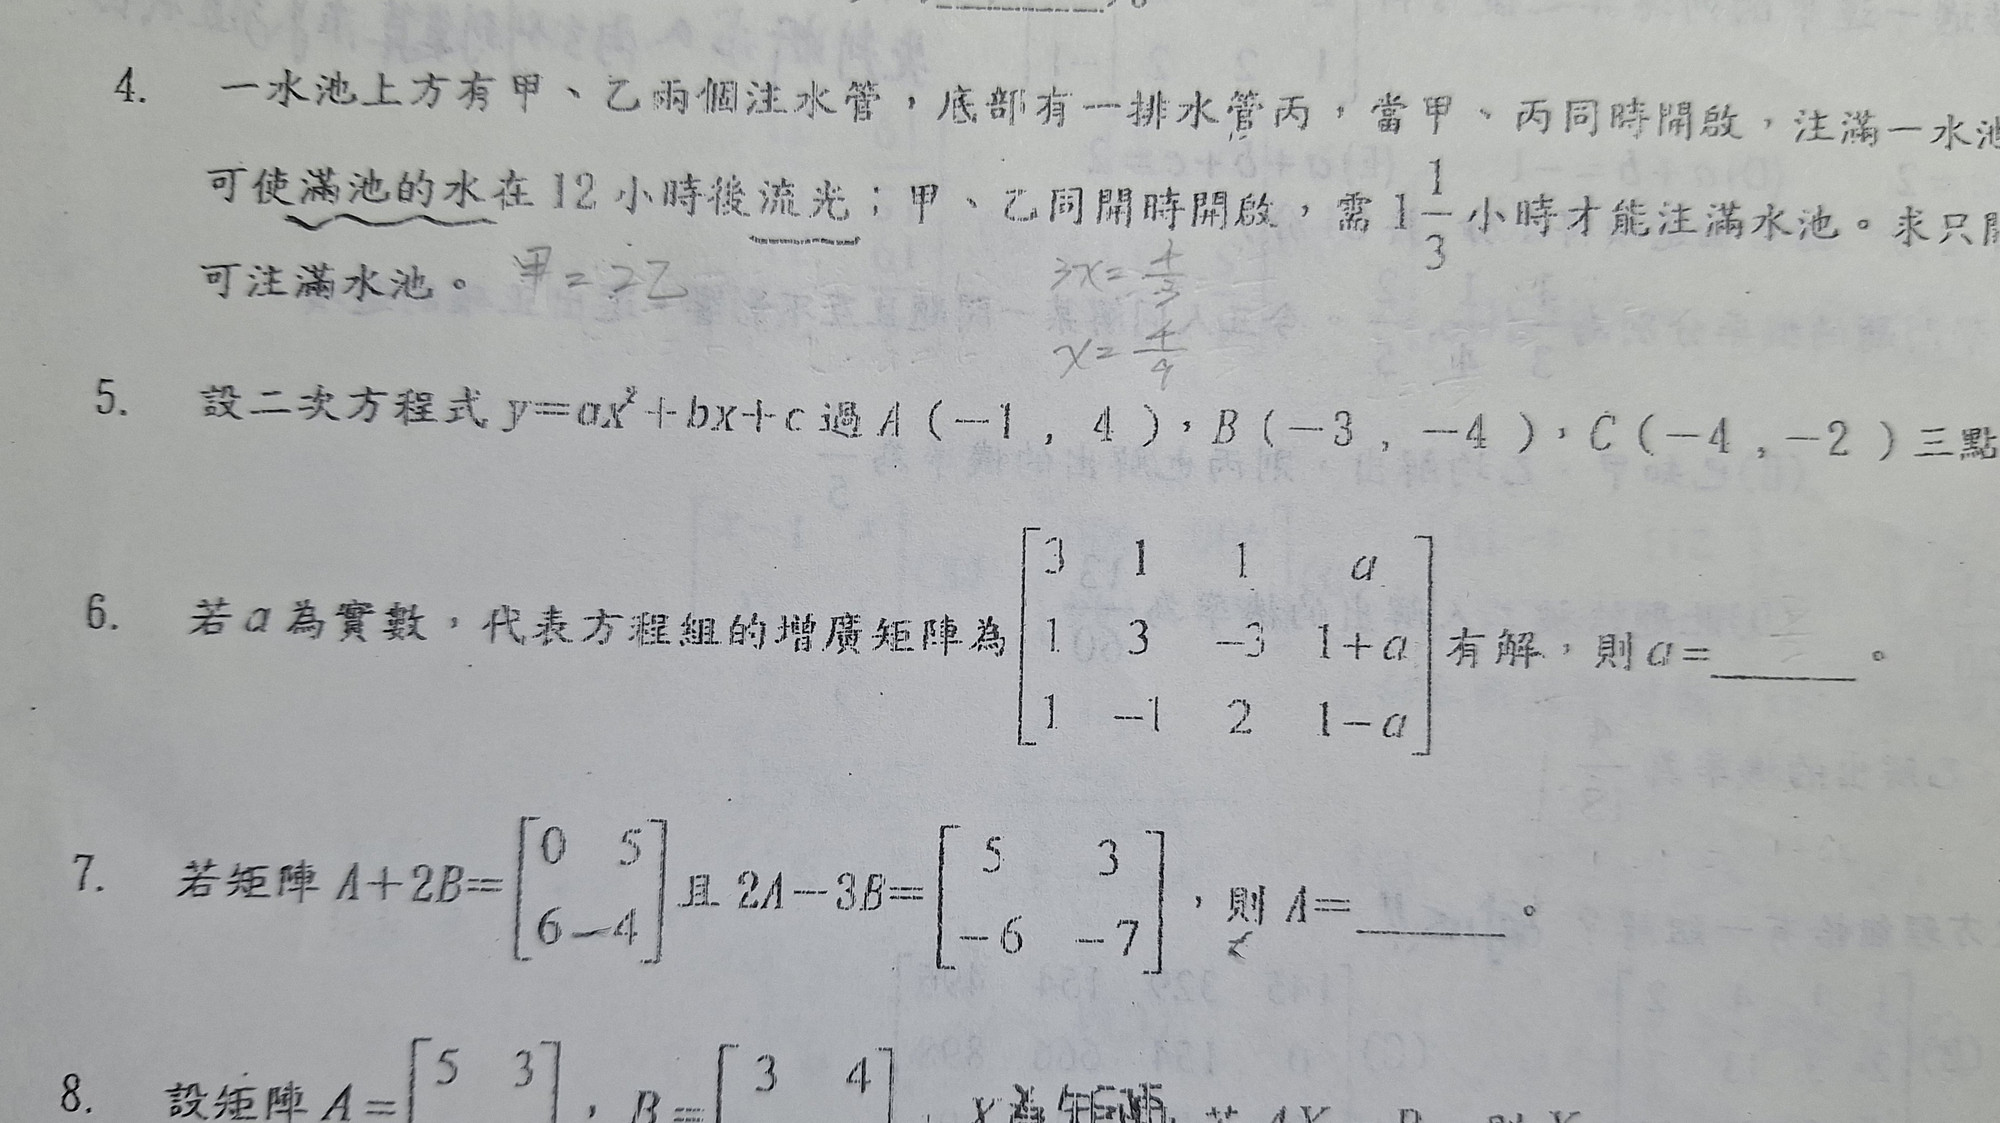 4. 一水池上方有甲、乙兩個注水管，底部有一排水管丙，當甲、丙同時開啟，注滿一水池
可使滿池的水在12小時後流光；甲、乙同開時開啟，需1 1/3 小時才能注滿水池。求只開
可注滿水池。 甲=2乙 3x=4/3
x=4/9
5. 設二次方程式 y=ax²+bx+c 過 A(-1, 4)，B(-3, -4)，C(-4, -2)三點
6. 若a為實數，代表方程組的增廣矩陣為 [3 1 1 a
1 3 -3 1+a
1 -1 2 1-a] 有解，則a=____。
7. 若矩陣 A+2B=[0 5
6 -4] 且 2A-3B=[5 3
-6 -7]，則 A=____。
8. 設矩陣 A=[5 3]，B=[3 4]，X為矩陣